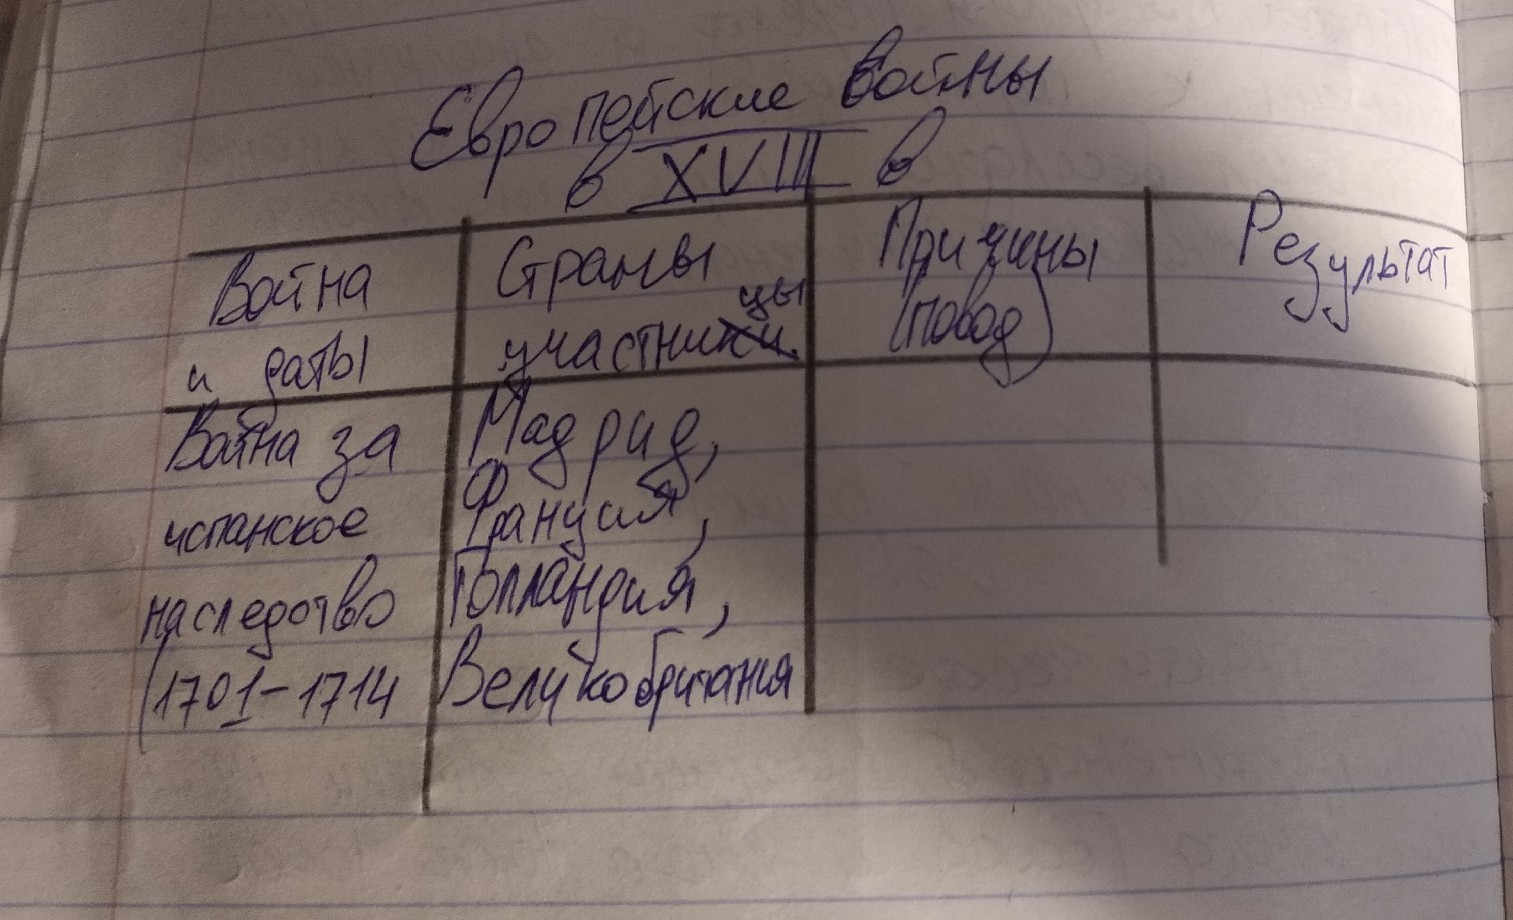 Европейские войны
в XVIII в
Война
и даты
Страны
участницы
Причины
(повод)
Результат
Война за
испанское
наследство
(1701-1714
Мадрид,
Франция,
Голландия,
Великобритания